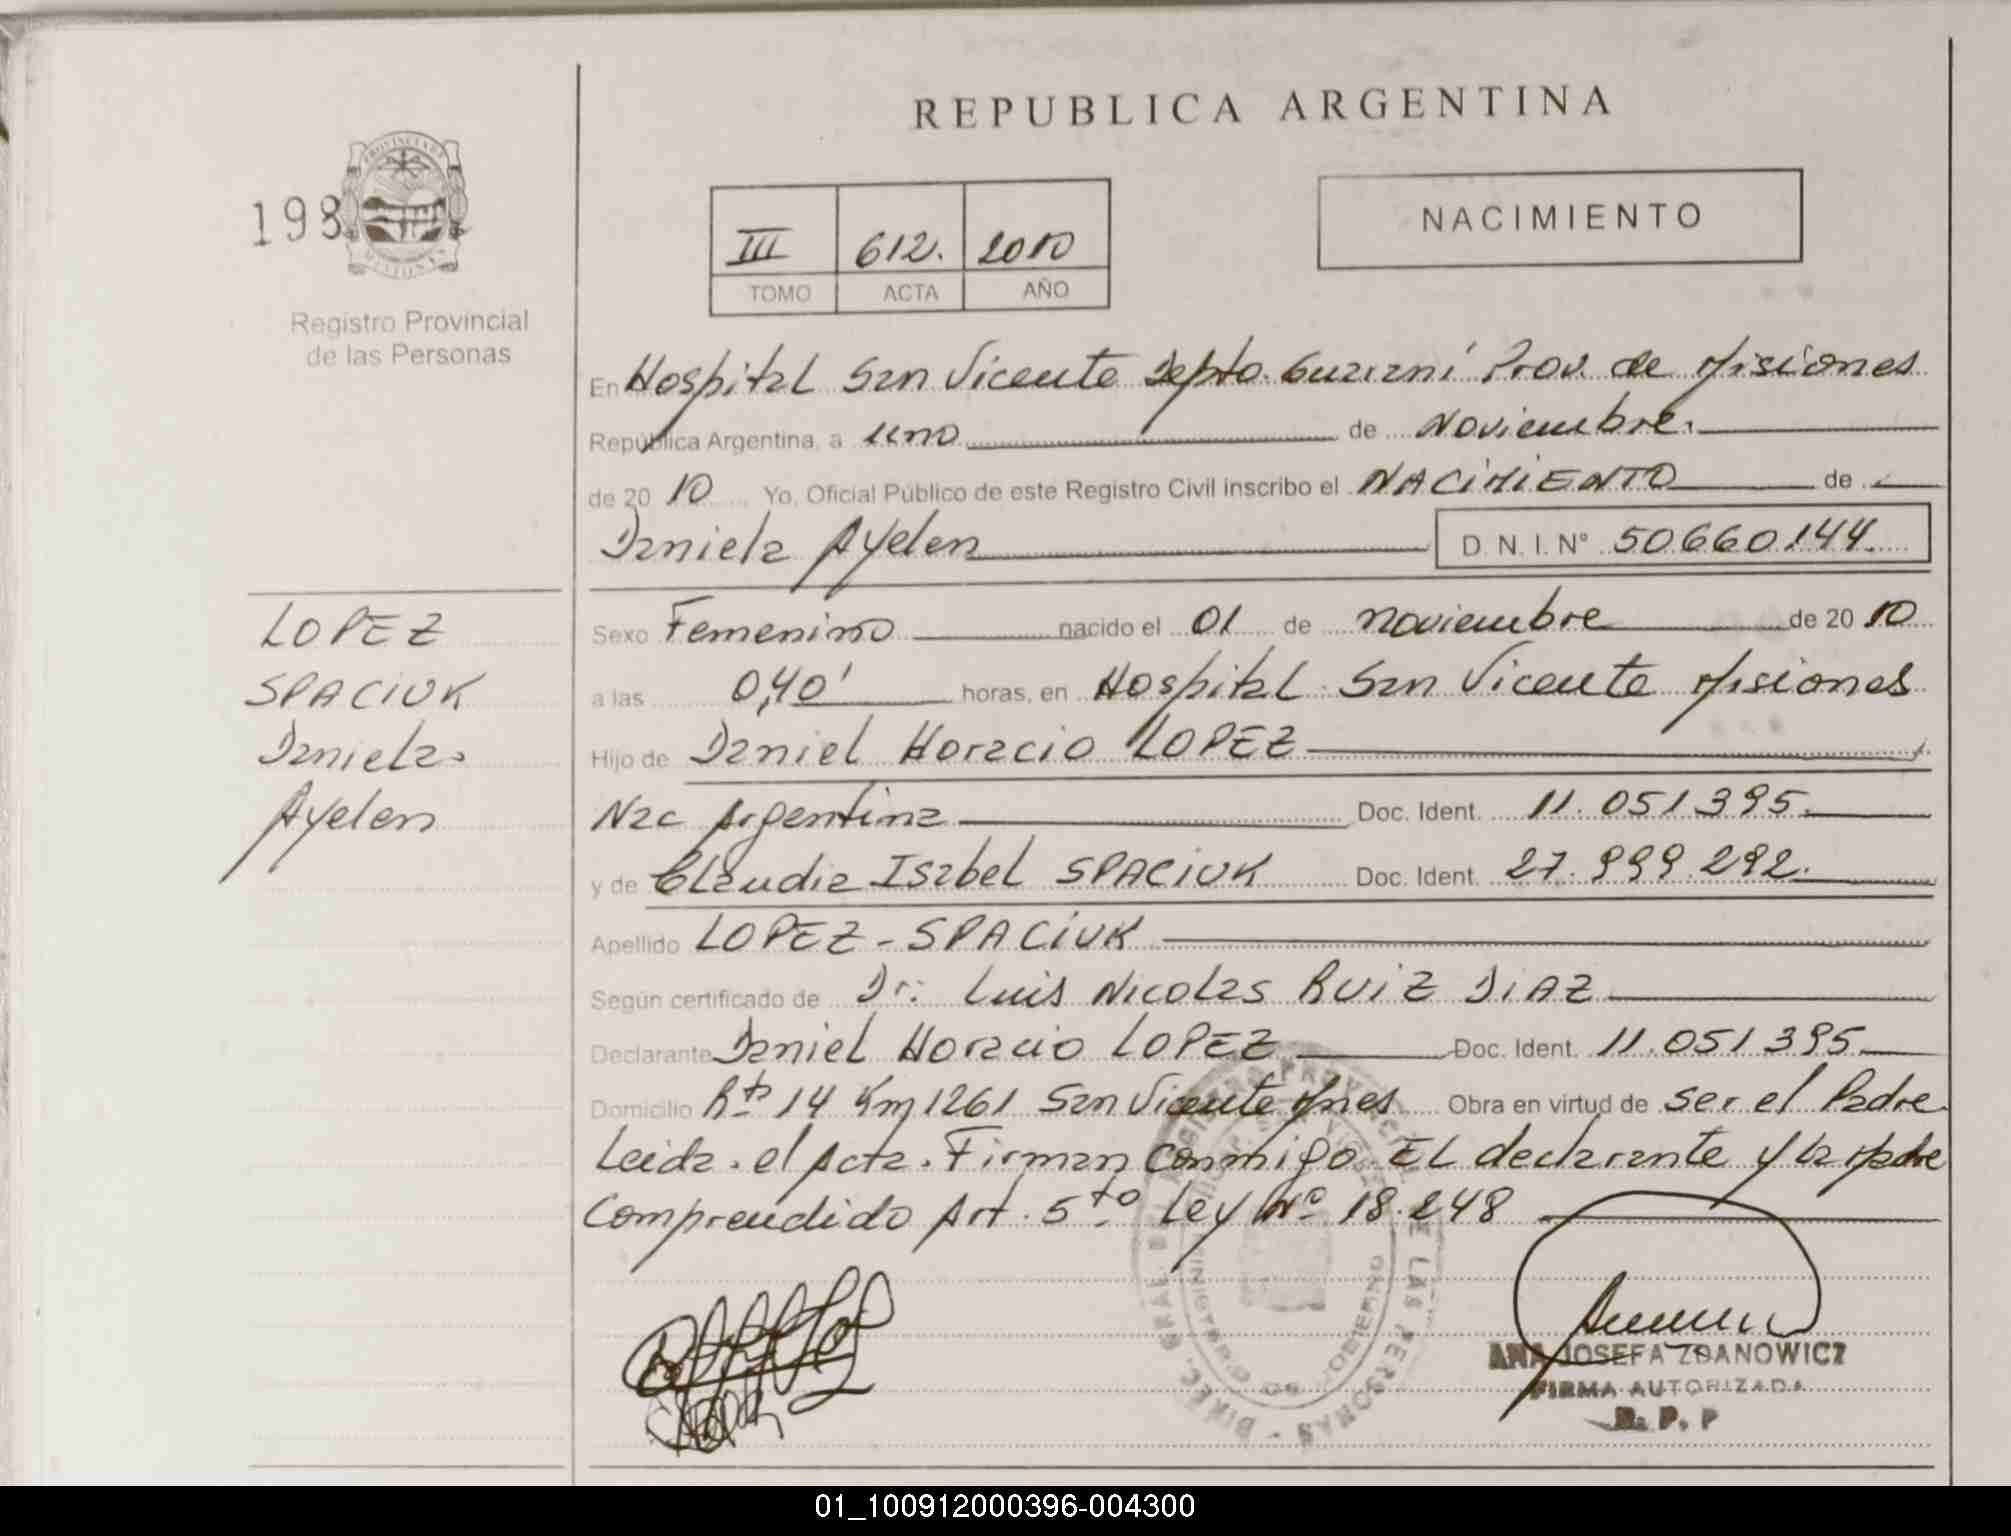 REPUBLICA ARGENTINA
198
PROVINCIA DE
MISIONES
Registro Provincial
de las Personas
III 612. 2010
TOMO ACTA AÑO
NACIMIENTO
En Hospital San Vicente Depto. Guaraní Prov. de Misiones
República Argentina, a uno de Noviembre.
de 20 10 Yo, Oficial Público de este Registro Civil inscribo el NACIMIENTO de
Daniela Ayelen D. N. I. Nº 50660.144.
LOPEZ
SPACIUK
Daniela
Ayelen
Sexo Femenino nacido el 01 de noviembre de 20 10
a las 0,40' horas, en Hospital San Vicente Misiones
Hijo de Daniel Horacio LOPEZ
Nac Argentina Doc. Ident. 11.051.395.
y de Claudia Isabel SPACIUK Doc. Ident. 27.999.292.
Apellido LOPEZ - SPACIUK
Según certificado de Dr. Luis Nicolas RUIZ DIAZ
Declarante Daniel Horacio LOPEZ Doc. Ident. 11.051395
Domicilio Rta 14 Km 1261 San Vicente Mnes Obra en virtud de ser el Padre
Leida el Acta. Firman conmigo EL declarante y la Madre
Comprendido Art. 5to Ley Nº 18.248
DIREC. GRAL. DEL REGISTRO PROVINCIAL DE LAS PERSONAS
MINISTERIO DE GOBIERNO
ANA JOSEFA ZDANOWICZ
FIRMA AUTORIZADA
R. P. P
01_100912000396-004300